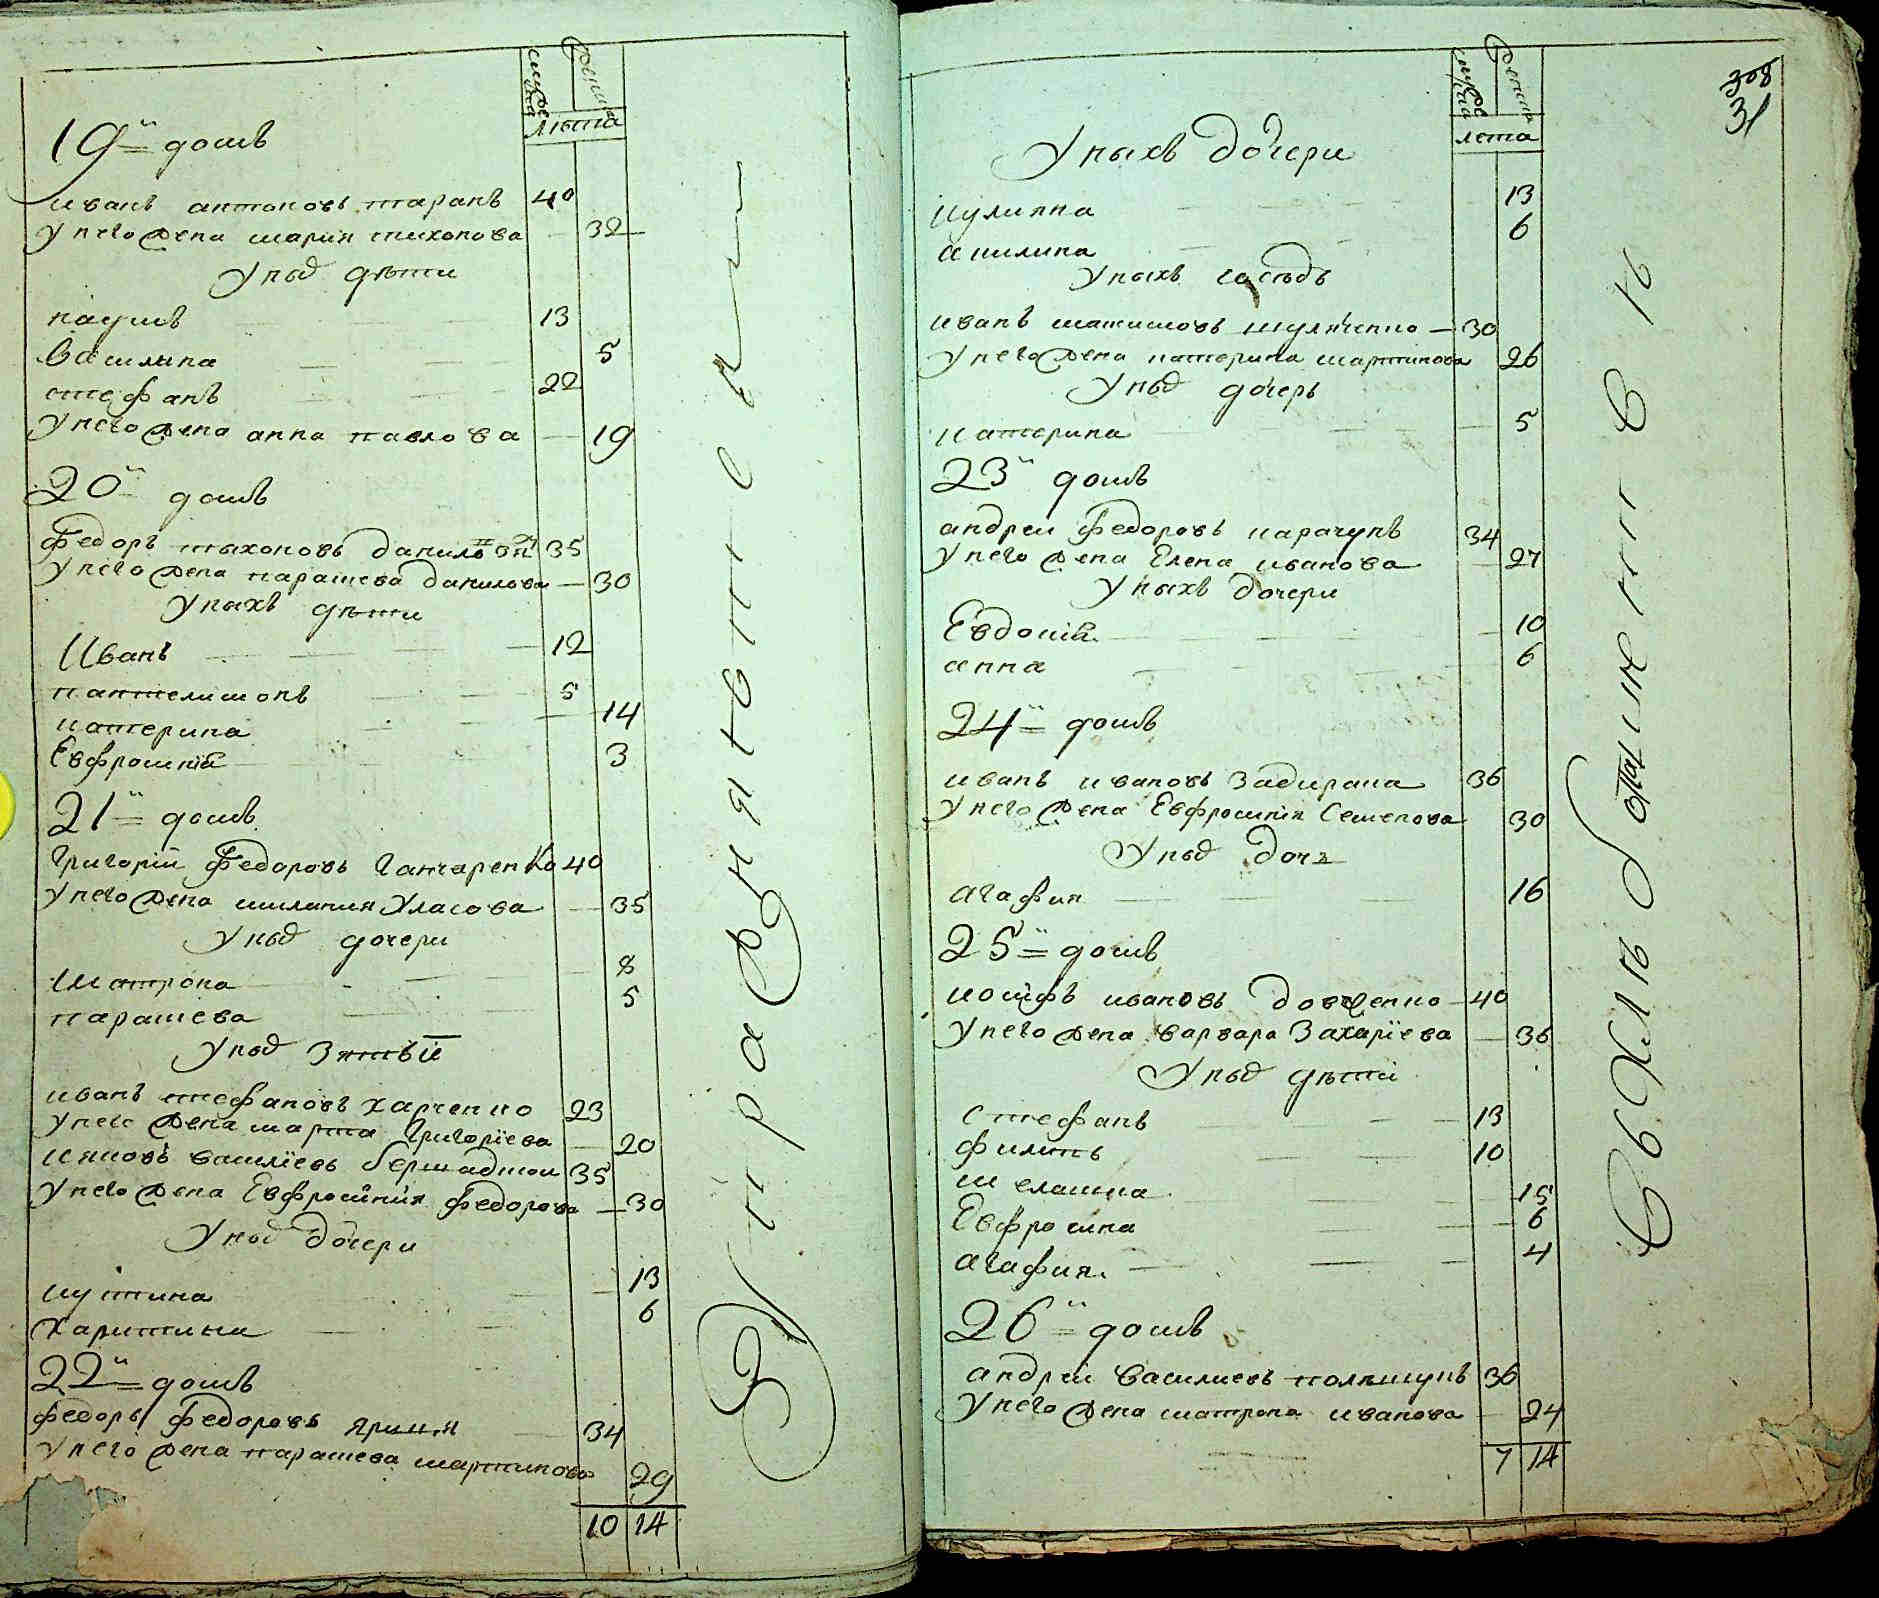 мужеска
женска
лѣта
19й домъ
иванъ антоновъ таранъ 40
У него жена мария тихонова 32
У ныхъ дѣти
наумъ 13
Василина 5
стефанъ 22
У него жена анна павлова 19
20й домъ
Федоръ тыхоновъ 35
У него жена парасцева данилова 30
У ныхъ дѣти
Иванъ 12
пантелимонъ 5
катерина 14
Евфросиніа 3
21й домъ
Григорій Федоровъ Ганчаренко 40
У него жена Уласова 35
У ныхъ дочери
матрона 8
парасцева 5
У ныхъ зятьѣ
иванъ стефановъ харченко 23
У него жена марта Григоріева 20
якковъ василіевъ 35
У него жена Евфросинія Федорова 30
У ныхъ дочери
иустина 13
Харитина 6
22й домъ
Федоръ Федоровъ 34
У него жена парасцева мартинова 29
10 14
мужеска
женска
лѣта
308
31
У ныхъ дочери
иулияна 13
акилина 6
У ныхъ сосѣдъ
иванъ максимовъ шуляченко 30
У него жена катерина мартинова 26
У ныхъ дочерь
катерина 5
23й домъ
андрей Федоровъ карачунъ 34
У него жена Елена иванова 27
У ныхъ дочери
Евдокіа 10
анна 6
24й домъ
иванъ ивановъ Задирака 36
У него жена Евфросинія Семенова 30
У ныхъ дочъ
агафия 16
25й домъ
иосифъ ивановъ 40
У него жена варвара Захаріева 36
У ныхъ дѣти
Стефанъ 13
филипъ 10
меланка 15
Евфросина 6
агафия 4
26й домъ
андрей Василиевъ полищукъ 36
У него жена матрона иванова 24
7 14